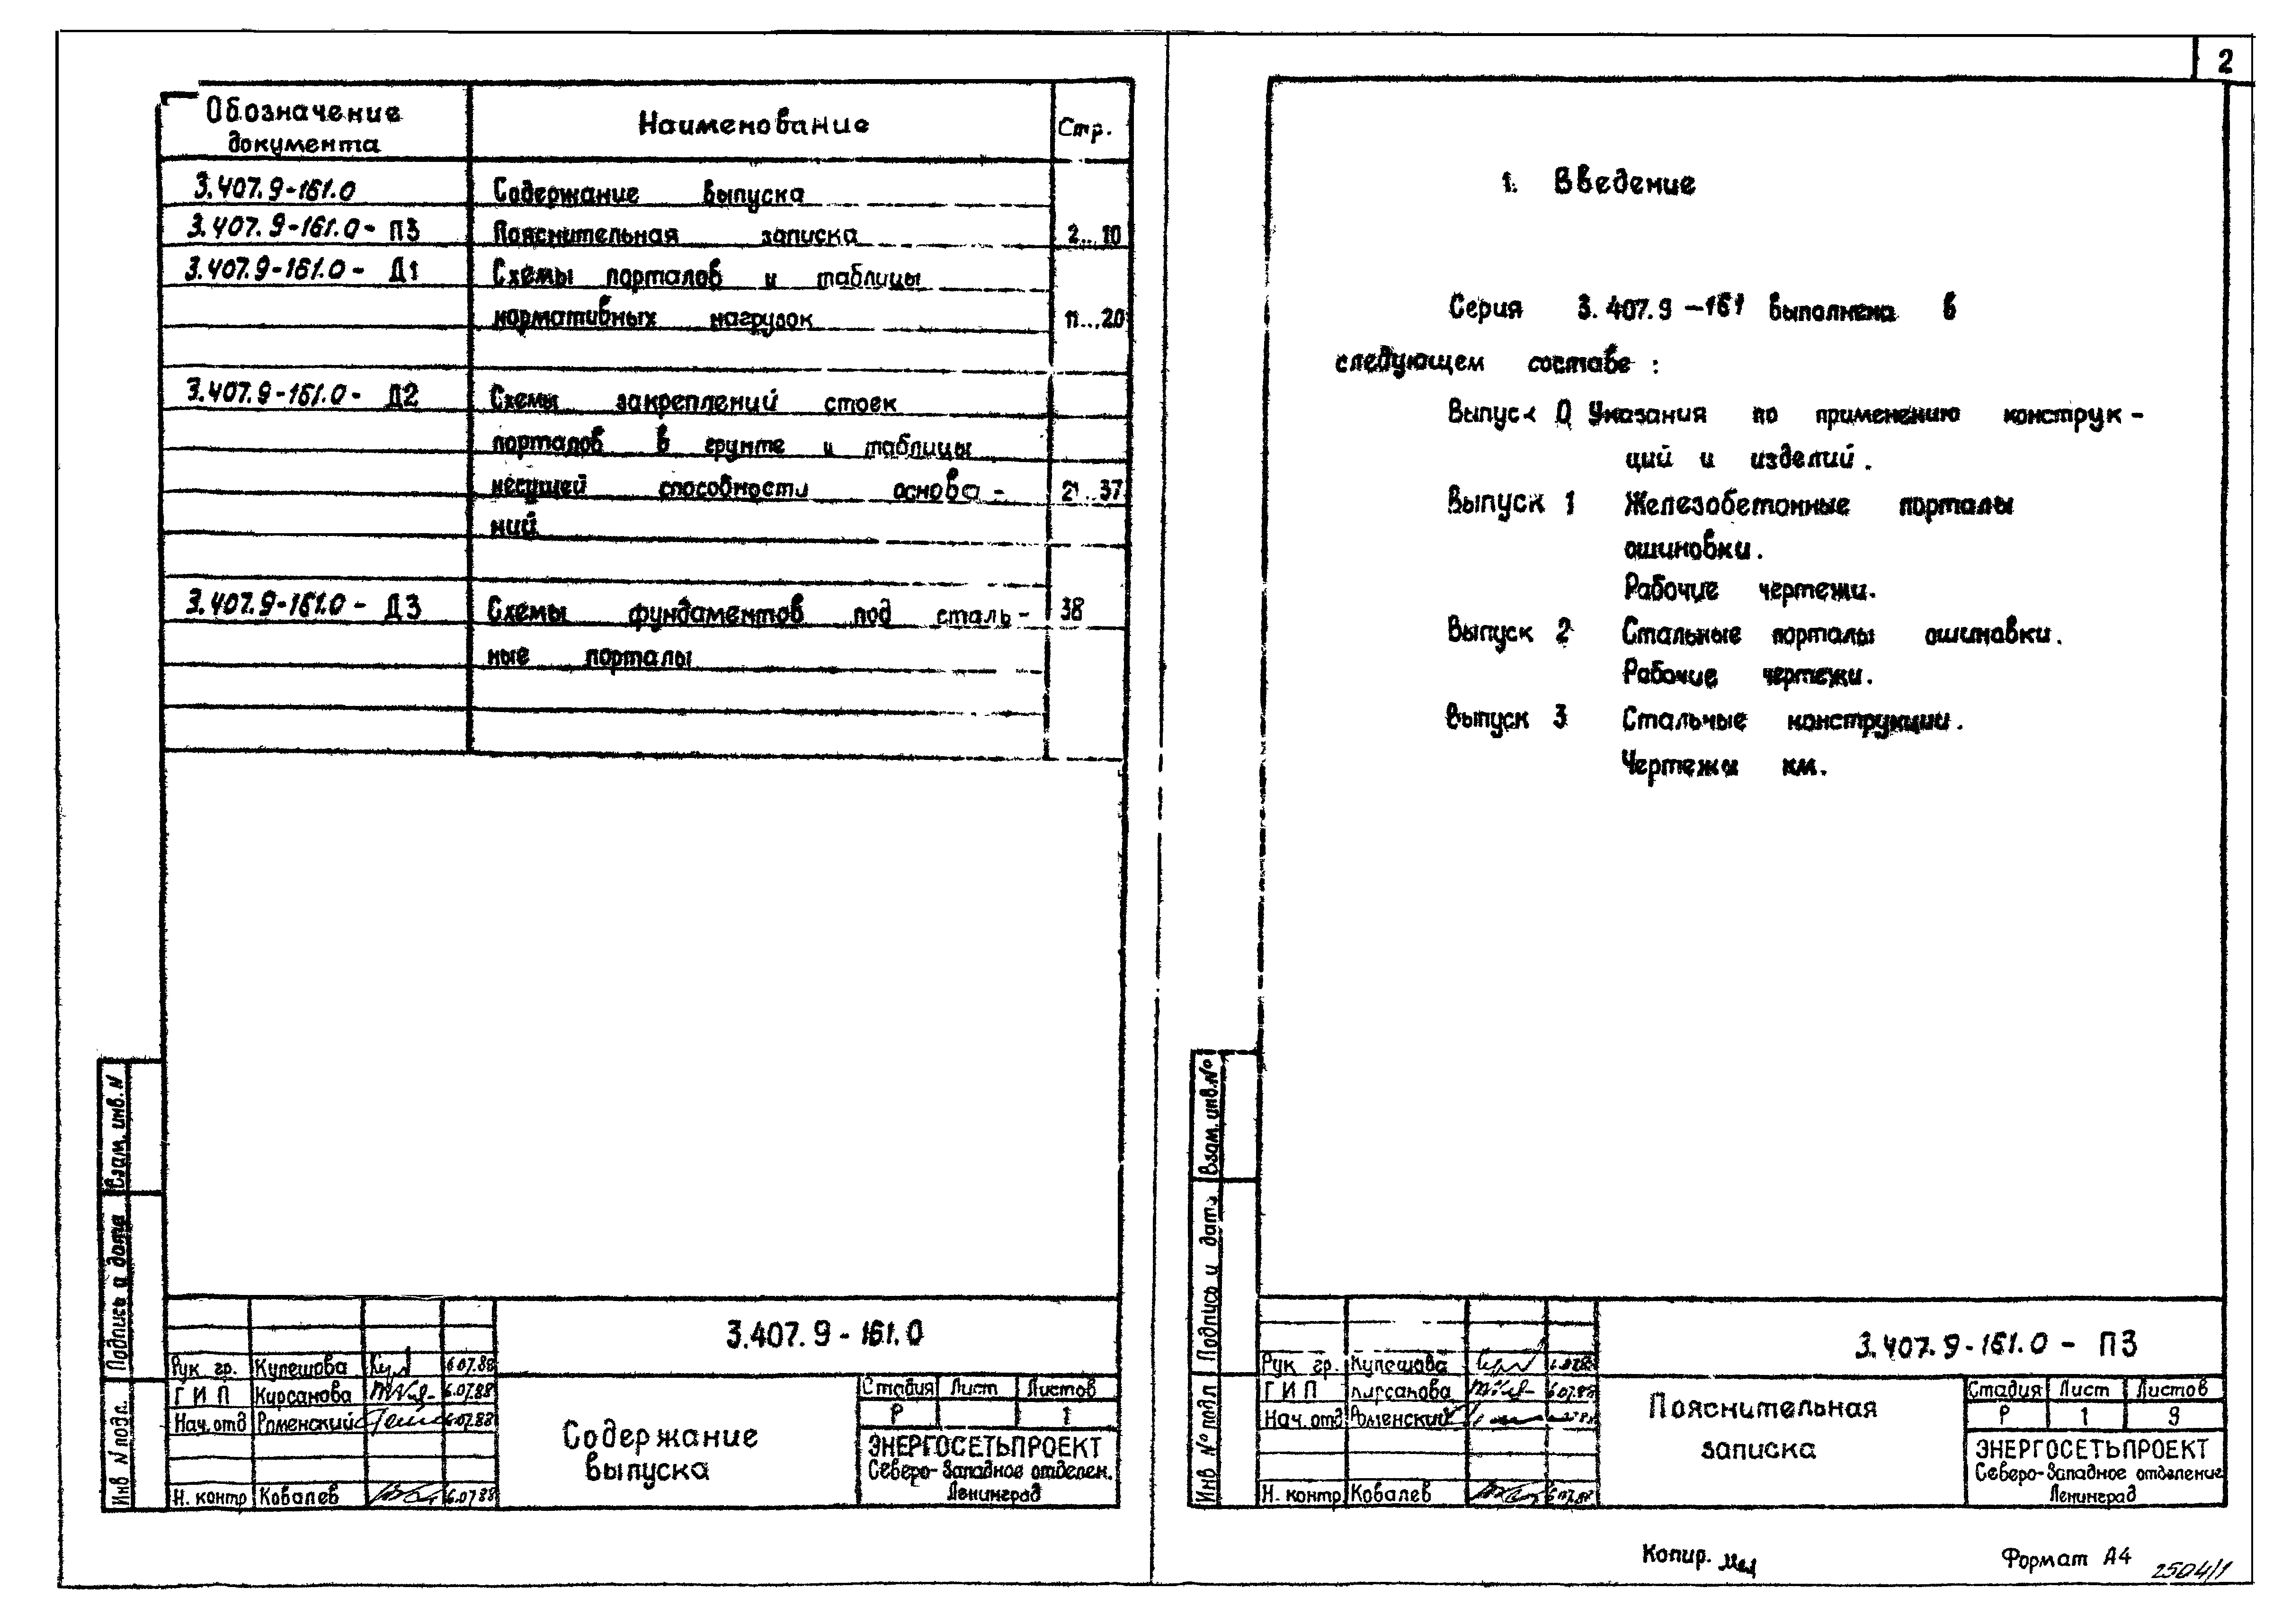 2
Обозначение документа
Наименование
Стр.
3.407.9-161.0 Содержание выпуска
3.407.9-161.0- ПЗ Пояснительная записка 2...10
3.407.9-161.0- Д1 Схемы порталов и таблицы
нормативных нагрузок 11...20
3.407.9-161.0- Д2 Схемы закреплений стоек
порталов в грунте и таблицы
несущей способности основа- 21...37
ний
3.407.9-161.0- Д3 Схемы фундаментов под сталь- 38
ные порталы
Взам. инв. N
Подпись и дата
Инв N подл.
3.407.9-161.0
Рук гр. Кулешова 6.07.88
ГИП Кирсанова 6.07.88
Нач. отд Роменский 6.07.88
Н. контр Ковалев 6.07.88
Содержание
выпуска
Стадия Лист Листов
Р 1
ЭНЕРГОСЕТЬПРОЕКТ
Северо-Западное отделен.
Ленинград
1. Введение
Серия 3.407.9-161 выполнена в
следующем составе:
Выпуск 0 Указания по применению конструк-
ций и изделий.
Выпуск 1 Железобетонные порталы
ошиновки.
Рабочие чертежи.
Выпуск 2 Стальные порталы ошиновки.
Рабочие чертежи.
Выпуск 3 Стальные конструкции.
Чертежи км.
Взам. инв. №
Подпись и дата
Инв № подл
3.407.9-161.0 - ПЗ
Рук гр. Кулешова
ГИП Кирсанова 6.07.88
Нач. отд Роменский
Н. контр Ковалев 6.07.88
Пояснительная
записка
Стадия Лист Листов
Р 1 9
ЭНЕРГОСЕТЬПРОЕКТ
Северо-Западное отделение
Ленинград
Копир.
Формат А4
2504/1